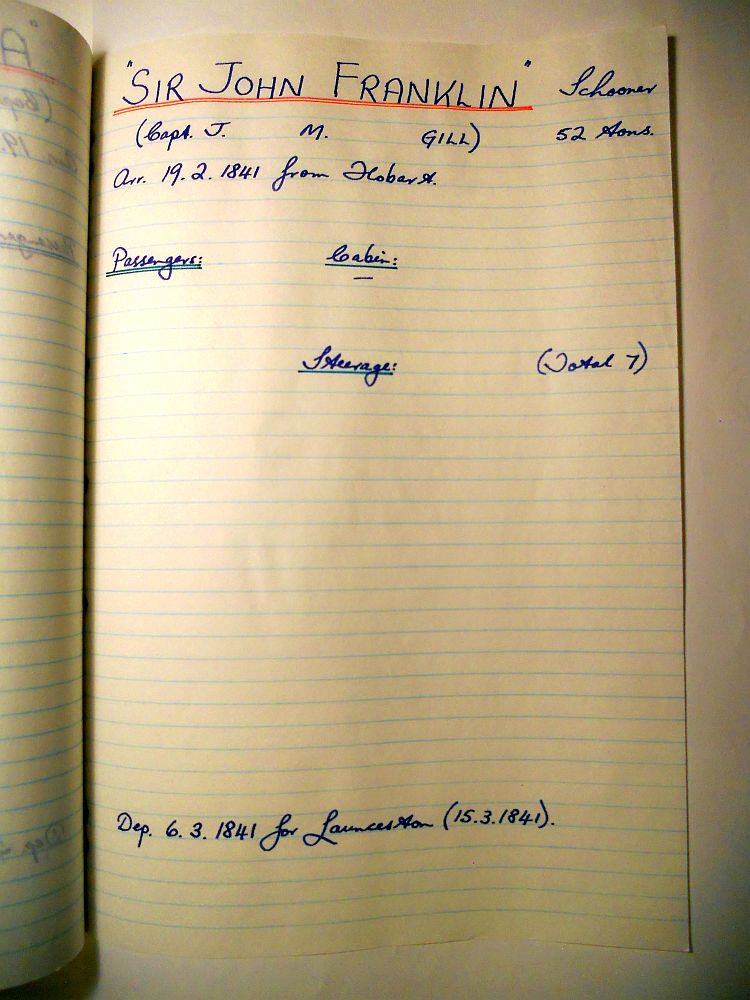 "SIR JOHN FRANKLIN" Schooner
(Capt. J. M. GILL) 52 tons.
Arr. 19.2.1841 from Hobart.
Passengers: Cabin:
—
Steerage: (Total 7)
Dep. 6.3.1841 for Launceston (15.3.1841).